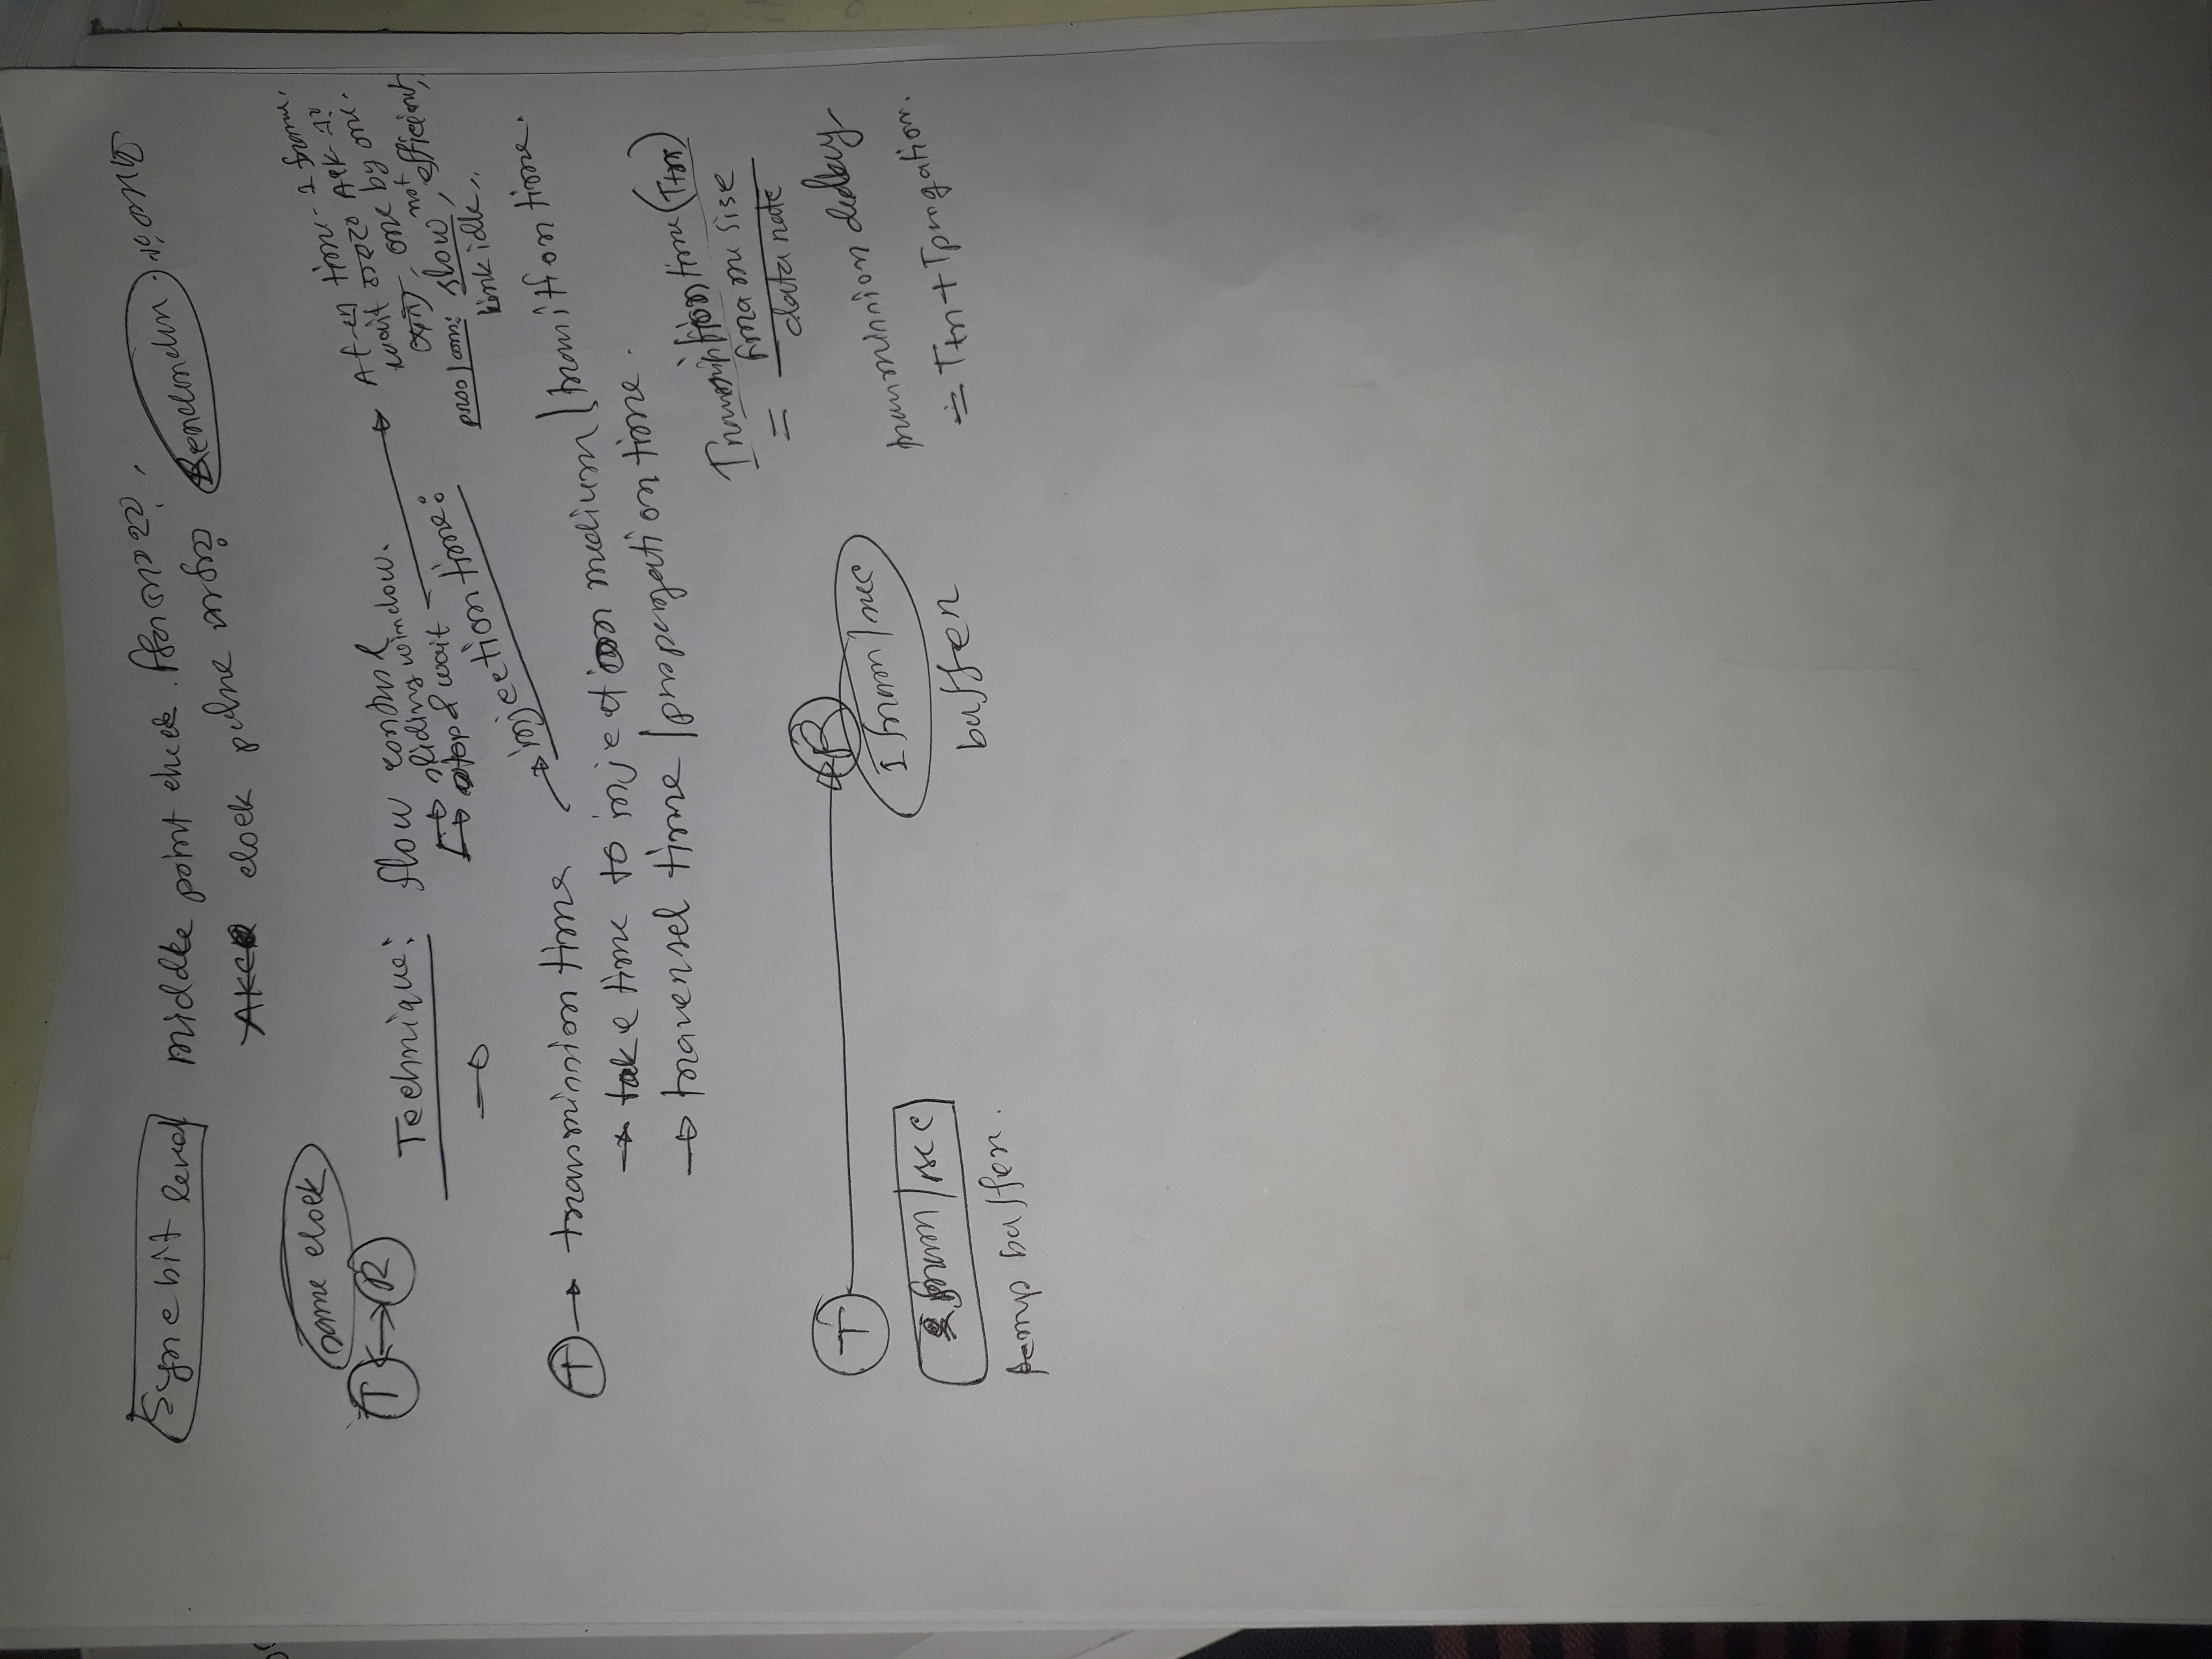 Sync bit level middle point check
clock pulse
same clock
T R
Technique: flow control
sliding window.
stop & wait
At time - 1 frame.
wait Ack
one by one.
slow, not efficient,
link idle
injection time:
T → transmission time
→ take time to inject on medium / transition time.
→ traversel time / propagation time.
time (Ttr)
= frame size
data rate
T R
2 fram/sec 1 fram/sec
temp buffer. buffer
transmission delay
= Ttr + Tprogation.